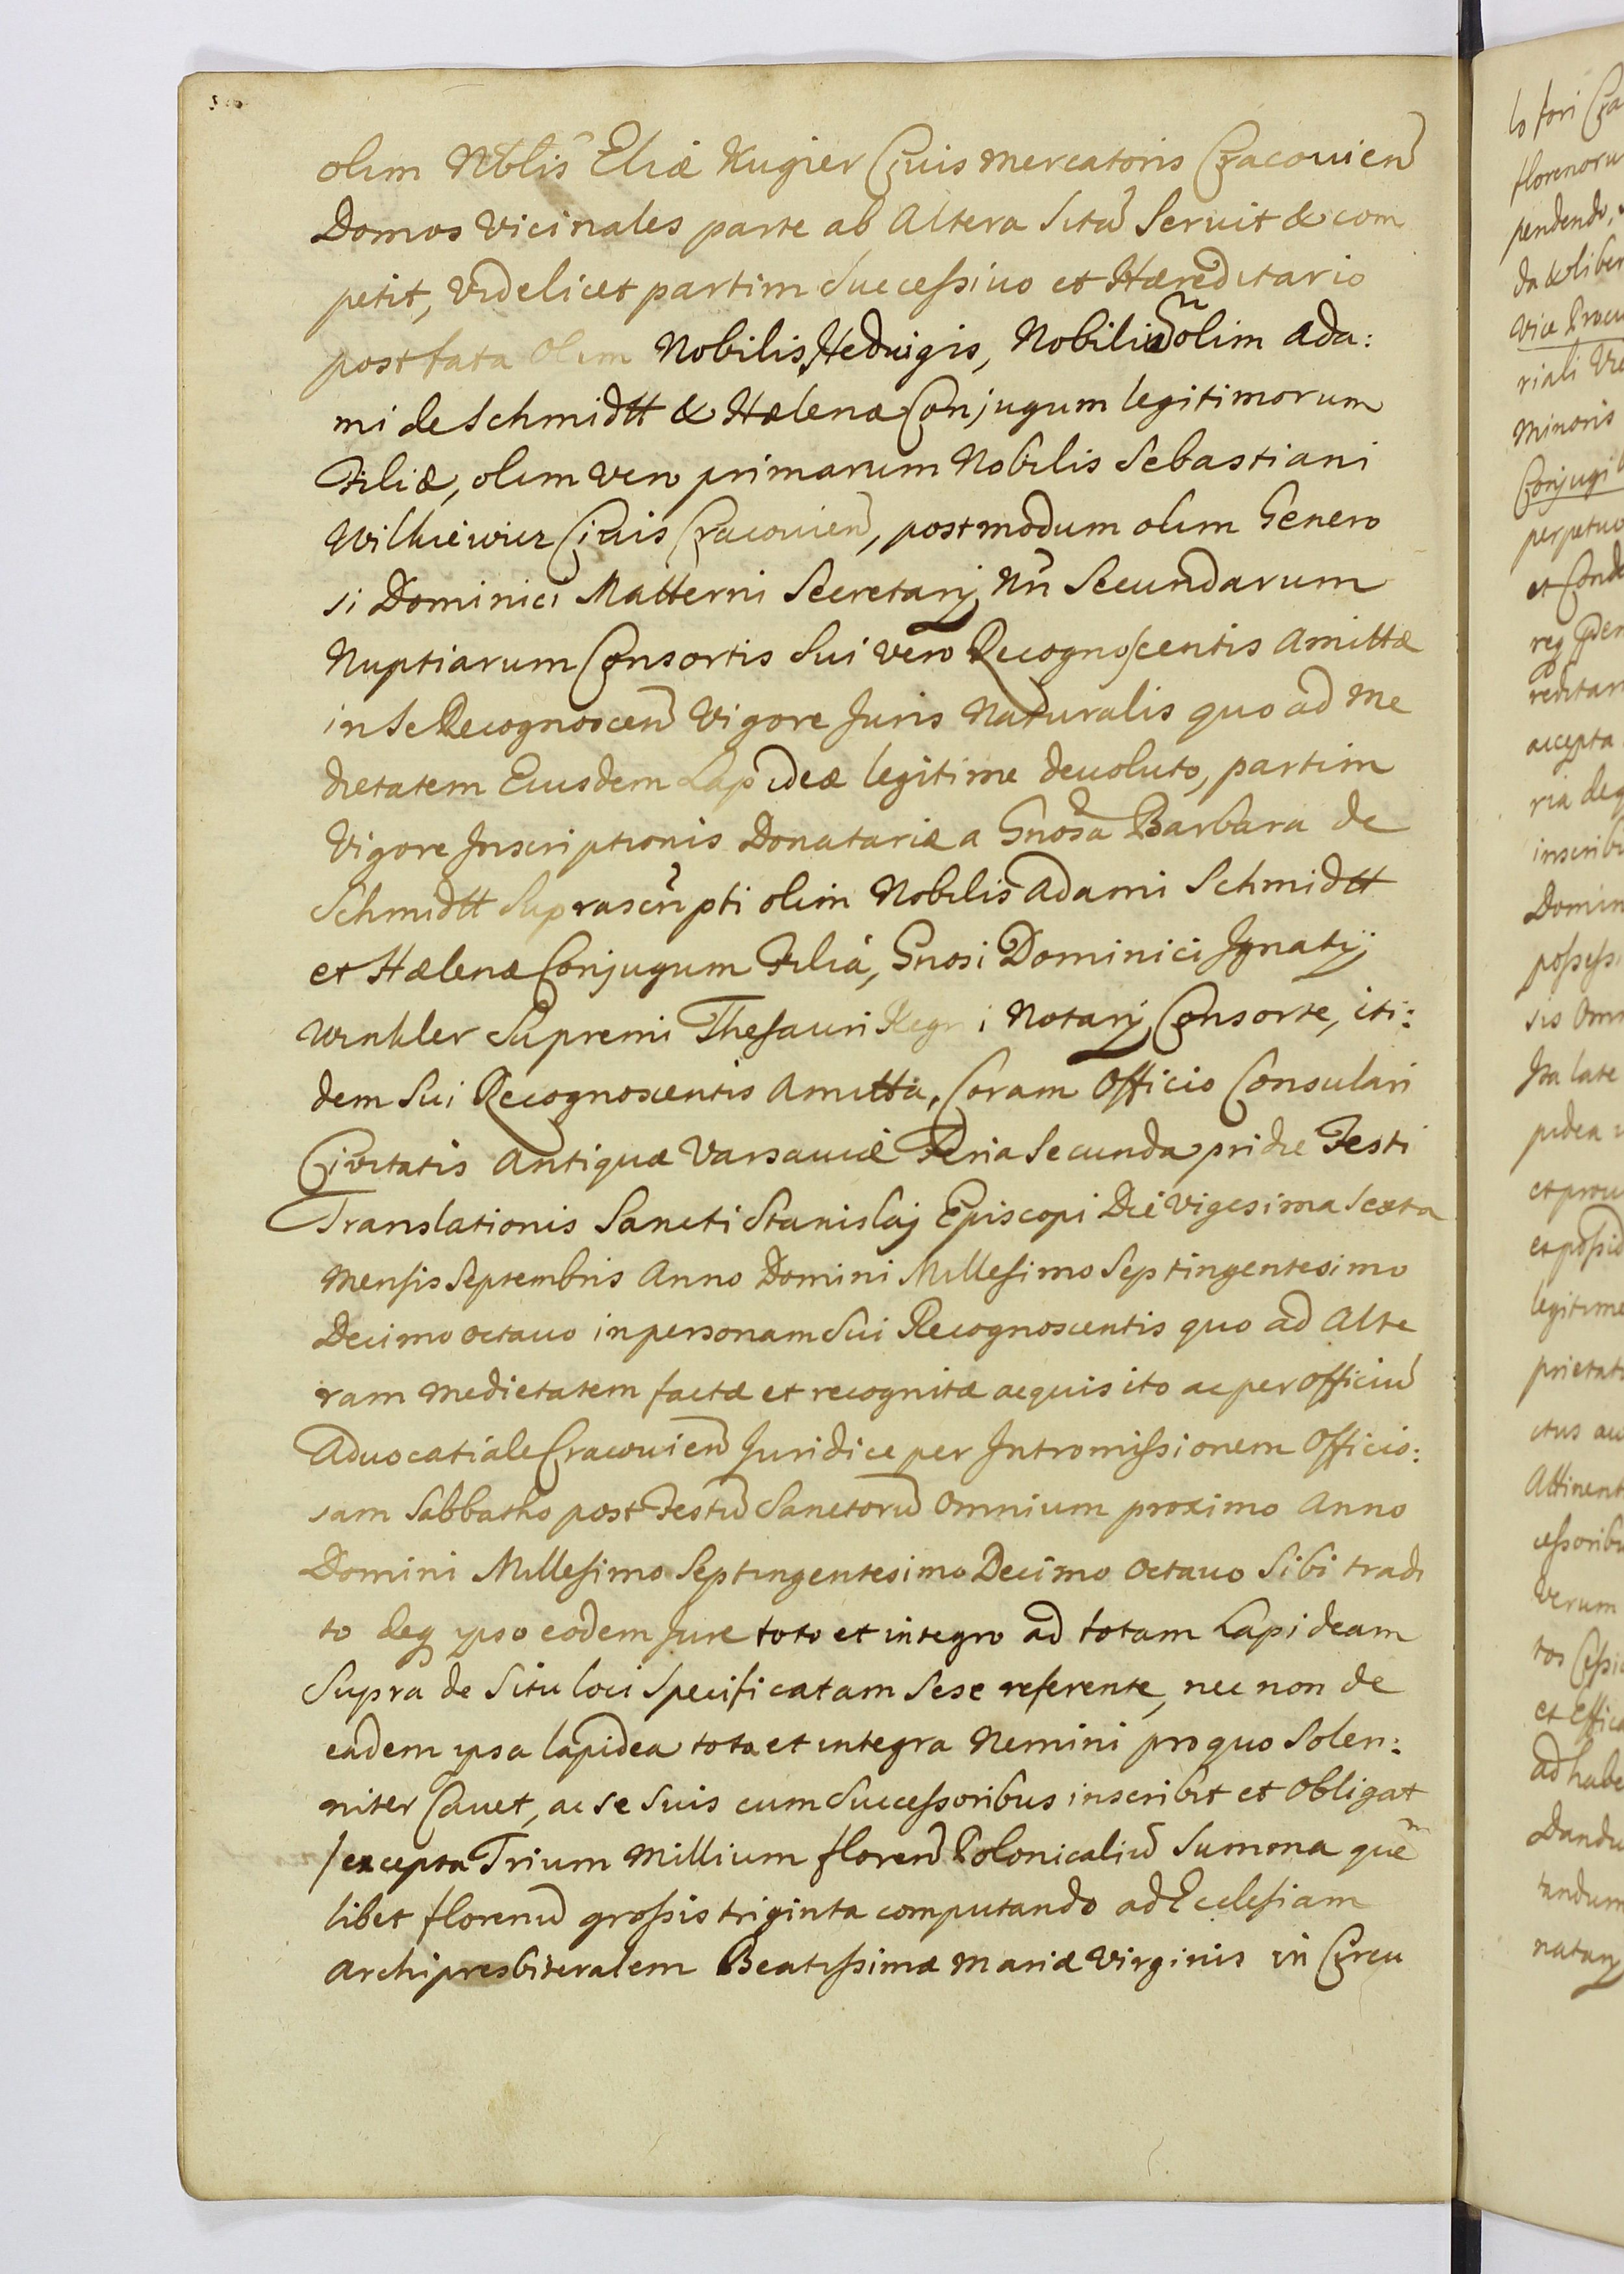 olim Nblis Eliæ Kugier Civis Mercatoris Cracovien
Domos Vicinales parte ab Altera Sita Servit & com
petit, Videlicet partim Successivo et Hæreditario
post fata Olim Nobilis Heduigis, Nobiliũ olim Ada:
mi de Schmidtt & Hælenæ Conjugum legitimorum
Filiæ, olim vero primarum Nobilis Sebastiani
Wilkiewicz Civis Cracovien, postmodum olim Genero
si Dominici Matterni Secretarij Nri Secundarum
Nuptiarum Consortis Sui vero Recognoscentis Amittæ
in Se Recognoscen Vigore Juris Naturalis quo ad Me
dietatem Eiusdem Lapideæ legitime devoluto, partim
Vigore Inscriptionis Donatariæ a Gnosa Barbara de
Schmidtt Suprascripti olim Nobilis Adami Schmidtt
et Hælenæ Conjugum Filia, Gnosi Dominici Ignatij
Winkler Supremi Thesauri Regni Notarij Consorte, iti:
dem Sui Recognoscentis Amitta, Coram Officio Consulari
Civitatis Antiquæ Varsaviæ Feria Secunda pridie Festi
Translationis Sancti Stanislaj Episcopi Die Vigesima Sexta
Mensis Septembris Anno Domini Millesimo Septingentesimo
Decimo octavo in personam Sui Recognoscentis quo ad Alte
ram Medietatem factæ et recognitæ acquisito ac per Officiũ
Advocatiale Cracovien Juridice per Intromissionem Officio:
sam Sabbatho post Festũ Sanctorũ Omnium proximo Anno
Domini Millesimo Septingentesimo Decimo Octavo Sibi tradi
to deq ipso eodem Jure toto et integro ad totam Lapideam
Supra de Situ loci Specificatam Sese referente, nec non de
eadem ipsa lapidea tota et integra Nemini pro quo Solen:
niter Cavet, ac se Suis cum Successoribus inscribit et Obligat
/excepta Trium Millium floren Polonicaliũ Summa quem
libet florenũ grossis triginta computando ad Ecclesiam
Archipresbiteralem Beatissimæ Mariæ Virginis in Circu
lo fori Cra
florenoru
pendendo,
da & liber
Vice Procu
riali Vic
Minoris
Conjugi
perpetuo
et Cond
reditari
accepta
ria deq
inscribi
Domin
possessi
sis Omn
Ita late
pidea
et prou
et possid
legitime
prietat
ctus au
Attinent
cessoribu
Verum
tos Cessi
et Effica
ad habe
Dandu
tandum
natarij